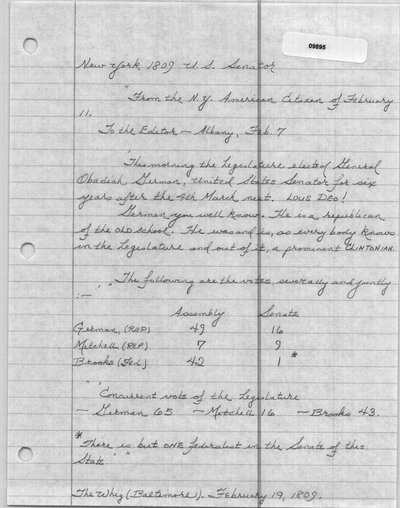 09895
New York 1809 U.S. Senator
"From the N.Y. American Citizen of February
11.
To the Editor — Albany, Feb. 7
'This morning the Legislature elected General
Obadiah German, United States Senator for six
years after the 4th March next. LOUS DEO!
German you well know. He is a republican
of the OLD school. He was and is, as every body knows
in the Legislature and out of it, a prominent CLINTONIAN.
'The following are the votes, severally and jointly
:—
Assembly Senate
German, (REP) 49 16
Mitchell (REP) 7 9
Brooks (Fed) 42 1 *
"'Concurrent vote of the Legislature
— German 65 — Mitchell 16 — Brooks 43.
*
'There is but ONE federalist in the Senate of this
State.' "
The Whig (Baltimore). February 19, 1809.